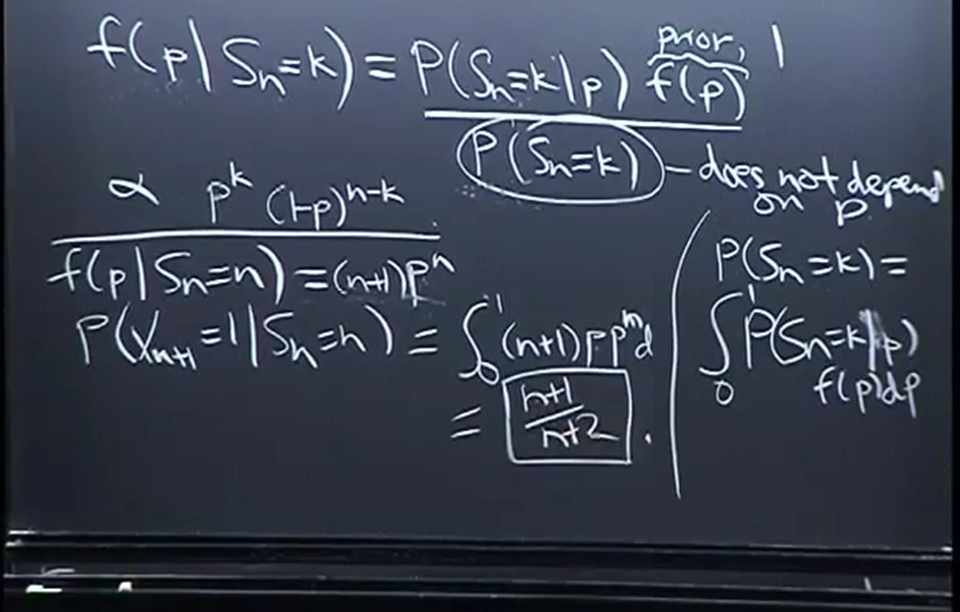 f(p|Sₙ=k) = P(Sₙ=k|p) f(p) prior, 1
P(Sₙ=k) – does not depend on p
∝ pᵏ (1-p)ⁿ⁻ᵏ
f(p|Sₙ=n) = (n+1)pⁿ
P(Xₙ₊₁=1|Sₙ=n) = ∫₀¹ (n+1) p pⁿ d
= n+1/n+2 .
P(Sₙ=k) =
∫₀¹ P(Sₙ=k|p)
f(p)dp